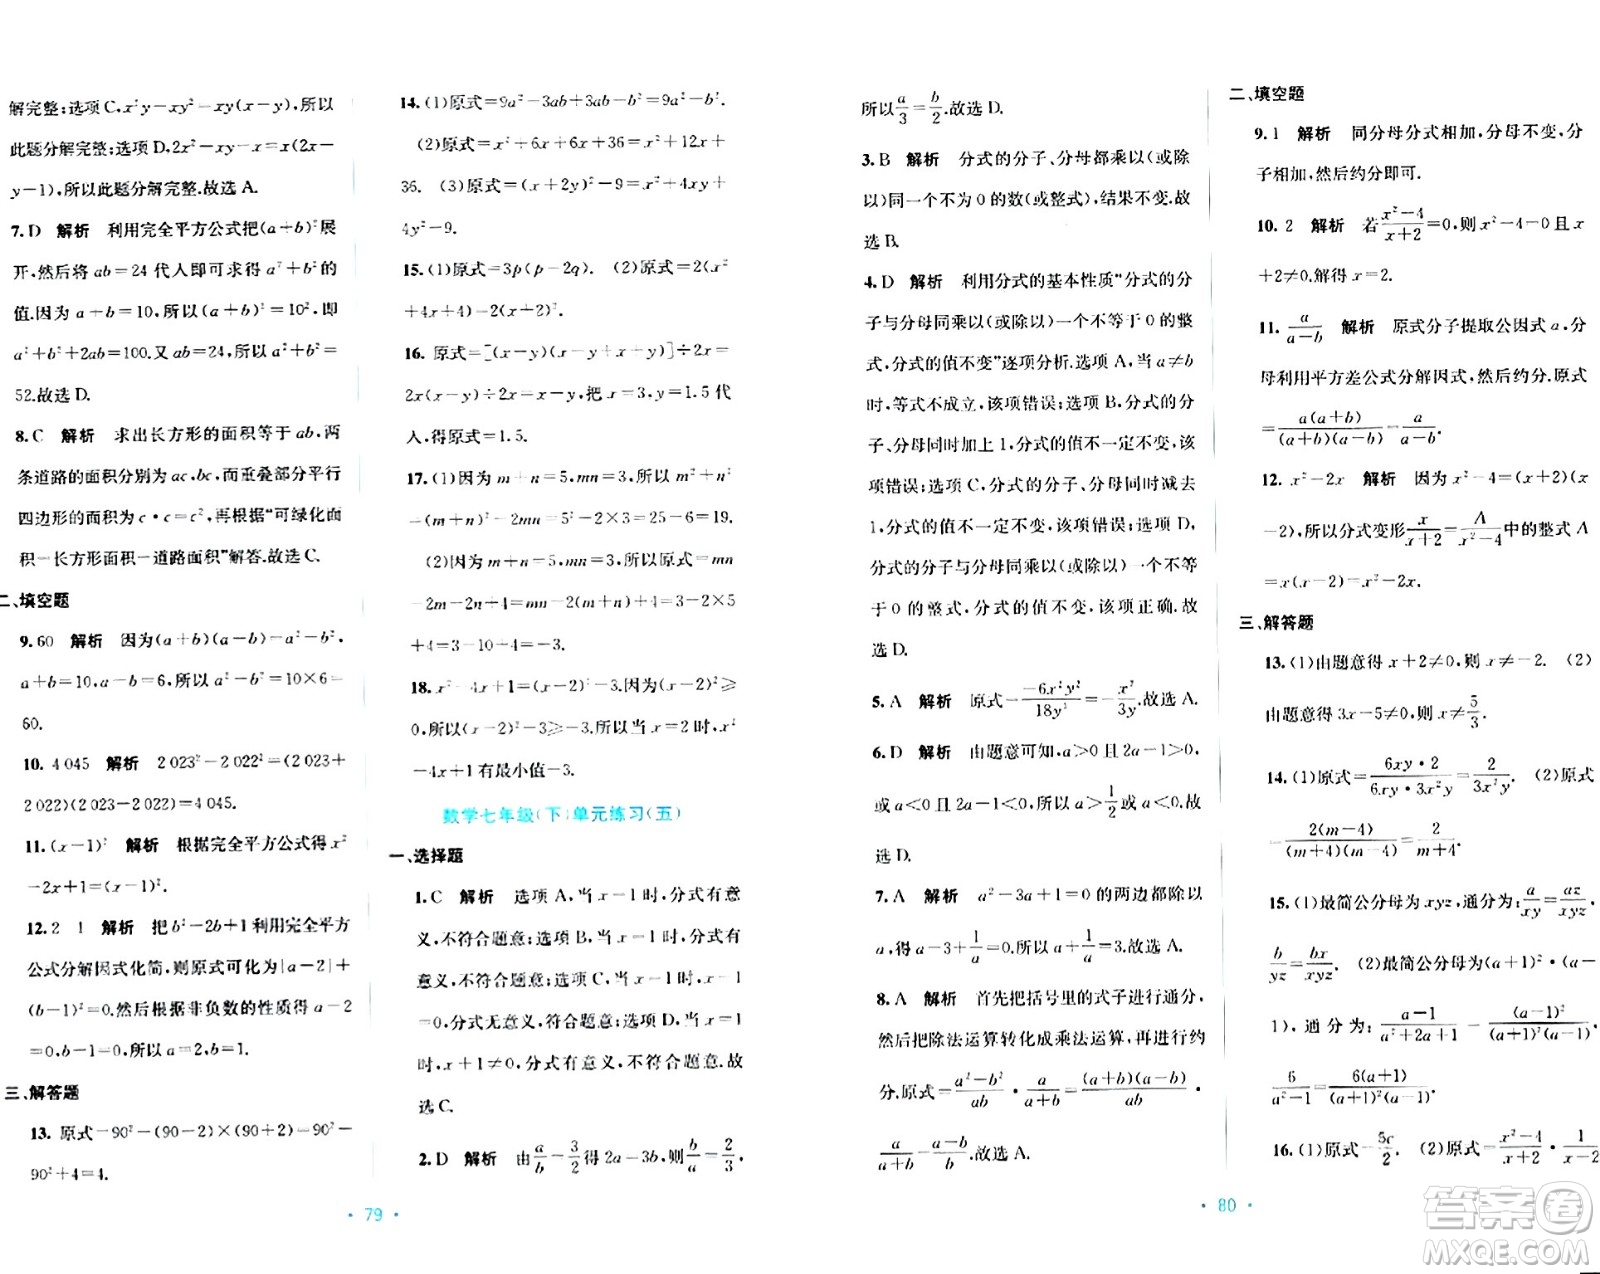 解完整;选项C,x²y-xy²=xy(x-y),所以
此题分解完整;选项D,2x²-xy-x=x(2x-
y-1),所以此题分解完整.故选A.
7.D 解析 利用完全平方公式把(a+b)²展
开,然后将ab=24代入即可求得a²+b²的
值.因为a+b=10,所以(a+b)²=10²,即
a²+b²+2ab=100.又ab=24,所以a²+b²=
52.故选D.
8.C 解析 求出长方形的面积等于ab,两
条道路的面积分别为ac,bc,而重叠部分平行
四边形的面积为c·c=c²,再根据“可绿化面
积=长方形面积-道路面积”解答.故选C.
二、填空题
9.60 解析 因为(a+b)(a-b)=a²-b²,
a+b=10,a-b=6,所以a²-b²=10×6=
60.
10. 4 045 解析 2 023²-2 022²=(2 023+
2 022)(2 023-2 022)=4 045.
11.(x-1)² 解析 根据完全平方公式得x²
-2x+1=(x-1)².
12.2 1 解析 把b²-2b+1利用完全平方
公式分解因式化简,则原式可化为|a-2|+
(b-1)²=0.然后根据非负数的性质得a-2
=0,b-1=0,所以a=2,b=1.
三、解答题
13. 原式=90²-(90-2)×(90+2)=90²-
90²+4=4.
• 79 •
14.(1)原式=9a²-3ab+3ab-b²=9a²-b².
(2)原式=x²+6x+6x+36=x²+12x+
36. (3)原式=(x+2y)²-9=x²+4xy+
4y²-9.
15.(1)原式=3p(p-2q). (2)原式=2(x²
+4x+4)=2(x+2)².
16. 原式=[(x-y)(x-y+x+y)]÷2x=
2x(x-y)÷2x=x-y,把x-y=1.5代
入,得原式=1.5.
17.(1)因为m+n=5,mn=3,所以m²+n²
=(m+n)²-2mn=5²-2×3=25-6=19.
(2)因为m+n=5,mn=3,所以原式=mn
-2m-2n+4=mn-2(m+n)+4=3-2×5
+4=3-10+4=-3.
18. x²-4x+1=(x-2)²-3,因为(x-2)²≥
0,所以(x-2)²-3≥-3.所以当x=2时,x²
-4x+1有最小值-3.
数学七年级(下)单元练习(五)
一、选择题
1.C 解析 选项A,当x=1时,分式有意
义,不符合题意;选项B,当x=1时,分式有
意义,不符合题意;选项C,当x=1时,x-1
=0,分式无意义,符合题意;选项D,当x=1
时,x+1=2,分式有意义,不符合题意.故
选C.
2.D 解析 由a/b=3/2得2a=3b,则b/a=2/3,
所以a/3=b/2.故选D.
3.B 解析 分式的分子、分母都乘以(或除
以)同一个不为0的数(或整式),结果不变.故
选B.
4.D 解析 利用分式的基本性质“分式的分
子与分母同乘以(或除以)一个不等于0的整
式,分式的值不变”逐项分析.选项A,当a≠b
时,等式不成立,该项错误;选项B,分式的分
子、分母同时加上1,分式的值不一定不变,该
项错误;选项C,分式的分子、分母同时减去
1,分式的值不一定不变,该项错误;选项D,
分式的分子与分母同乘以(或除以)一个不等
于0的整式,分式的值不变,该项正确.故
选D.
5.A 解析 原式=-6x²y²/18y³=-x²/3y.故选A.
6.D 解析 由题意可知,a>0且2a-1>0,
或a<0且2a-1<0,所以a>1/2或a<0.故
选D.
7.A 解析 a²-3a+1=0的两边都除以
a,得a-3+1/a=0,所以a+1/a=3.故选A.
8.A 解析 首先把括号里的式子进行通分,
然后把除法运算转化成乘法运算,再进行约
分.原式=(a²-b²)/ab·a/(a+b)=(a+b)(a-b)/ab·
a/(a+b)=(a-b)/b.故选A.
• 80 •
二、填空题
9.1 解析 同分母分式相加,分母不变,分
子相加,然后约分即可.
10. 2 解析 若(x²-4)/(x+2)=0,则x²-4=0且x
+2≠0.解得x=2.
11. a/(a-b) 解析 原式分子提取公因式a,分
母利用平方差公式分解因式,然后约分.原式
=a(a+b)/(a+b)(a-b)=a/(a-b).
12. x²-2x 解析 因为x²-4=(x+2)(x
-2),所以分式变形x/(x+2)=A/(x²-4)中的整式A
=x(x-2)=x²-2x.
三、解答题
13.(1)由题意得x+2≠0,则x≠-2. (2)
由题意得3x-5≠0,则x≠5/3.
14.(1)原式=6xy·2/6xy·3x²y=2/3x²y. (2)原式
=2(m-4)/(m+4)(m-4)=2/(m+4).
15.(1)最简公分母为xyz,通分为:a/xy=az/xyz,
b/yz=bx/xyz. (2)最简公分母为(a+1)²·(a-
1),通分为:(a-1)/(a²+2a+1)=(a-1)²/(a+1)²(a-1),
6/(a²-1)=6(a+1)/(a+1)²(a-1).
16.(1)原式=5c/2. (2)原式=(x²-4)/(x+2)·1/(x-2)
答案卷
MXQE.COM